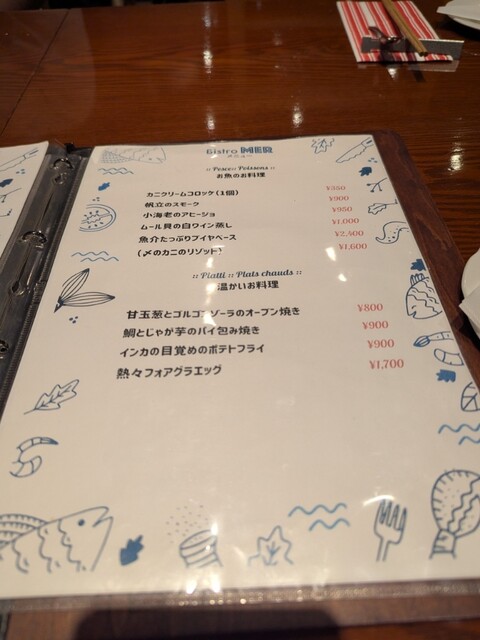 Bistro MER
メニュー
:: Pesce Poissons ::
お魚のお料理
カニクリームコロッケ(1個) ¥350
帆立のスモーク ¥900
小海老のアヒージョ ¥950
ムール貝の白ワイン蒸し ¥1,000
魚介たっぷりブイヤベース ¥2,400
(〆のカニのリゾット) ¥1,600
:: Piatti :: Plats chauds ::
温かいお料理
甘玉葱とゴルゴンゾーラのオーブン焼き ¥800
鯛とじゃが芋のパイ包み焼き ¥900
インカの目覚めのポテトフライ ¥900
熱々フォアグラエッグ ¥1,700